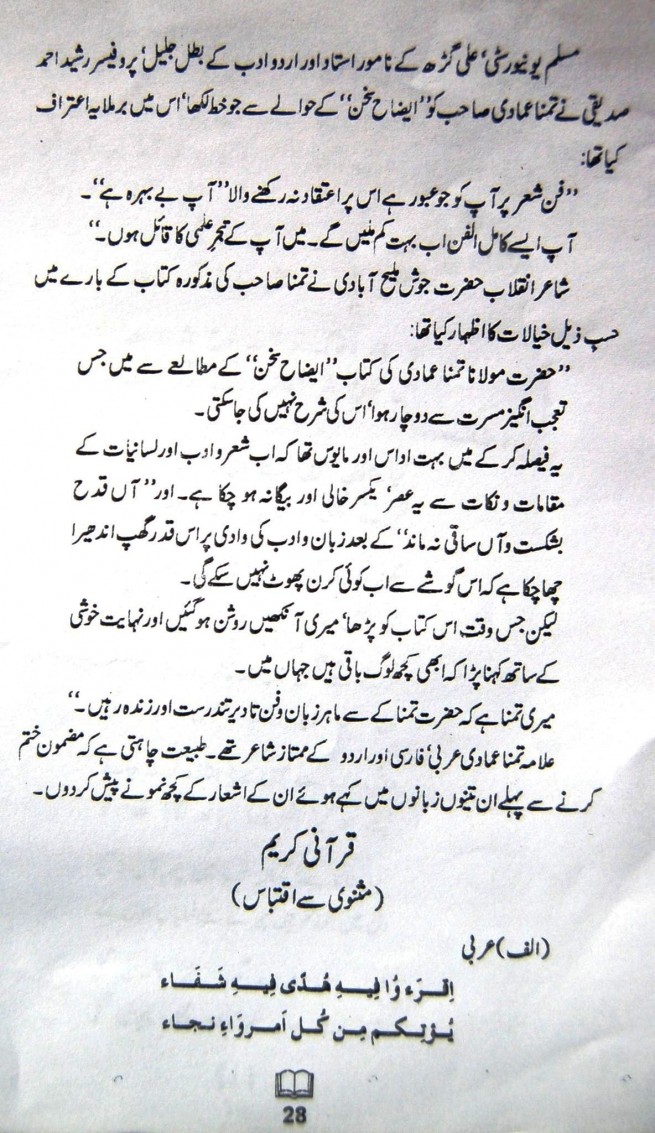 مسلم یونیورسٹی‘ علی گڑھ کے نامور استاد اور اردو ادب کے بطل جلیل‘ پروفیسر رشید احمد
صدیقی نے تمنا عمادی صاحب کو ’’ایضاح سخن‘‘ کے حوالے سے جو خط لکھا‘ اس میں برملا یہ اعتراف
کیا تھا:
’’فن شعر پر آپ کو جو عبور ہے اس پر اعتقاد نہ رکھنے والا ’’آپ بے بہرہ ہے‘‘۔
آپ ایسے کامل الفن اب بہت کم ملیں گے۔ میں آپ کے تبحر علمی کا قائل ہوں۔‘‘
شاعر انقلاب حضرت جوش ملیح آبادی نے تمنا صاحب کی مذکورہ کتاب کے بارے میں
حسب ذیل خیالات کا اظہار کیا تھا:
’’حضرت مولانا تمنا عمادی کی کتاب ’’ایضاح سخن‘‘ کے مطالعے سے میں جس
تعجب انگیز مسرت سے دوچار ہوا‘ اس کی شرح نہیں کی جا سکتی۔
یہ فیصلہ کر کے میں بہت اداس اور مایوس تھا کہ اب شعر و ادب اور لسانیات کے
مقامات و نکات سے یہ عصر‘ یکسر خالی اور بیگانہ ہو چکا ہے۔ اور ’’آں قدح
بشکست و آں ساقی نہ ماند‘‘ کے بعد زبان و ادب کی وادی پر اس قدر گھپ اندھیرا
چھا چکا ہے کہ اس گوشے سے اب کوئی کرن پھوٹ نہیں سکے گی۔
لیکن جس وقت اس کتاب کو پڑھا‘ میری آنکھیں روشن ہو گئیں اور نہایت خوشی
کے ساتھ کہنا پڑا کہ ابھی کچھ لوگ باقی ہیں جہاں میں۔
میری تمنا ہے کہ حضرت تمنا کے سے ماہر زبان و فن تا دیر تندرست اور زندہ رہیں۔‘‘
علامہ تمنا عمادی عربی‘ فارسی اور اردو کے ممتاز شاعر تھے۔ طبیعت چاہتی ہے کہ مضمون ختم
کرنے سے پہلے ان تینوں زبانوں میں کہے ہوئے ان کے اشعار کے کچھ نمونے پیش کر دوں۔
قرآنی کریم
(مثنوی سے اقتباس)
(الف) عربی
اِقرَءُ وا فِيهِ هُدًى فِيهِ شَفَاء
يُؤتِكم مِن كُل اَمرٍ وَاءِ نجاء
28